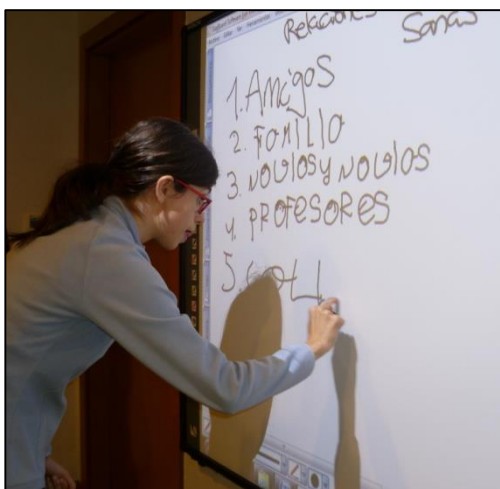 Relaciones Sanas
1. Amigos
2. Familia
3. Novios y Novias
4. PROFESORES
5.